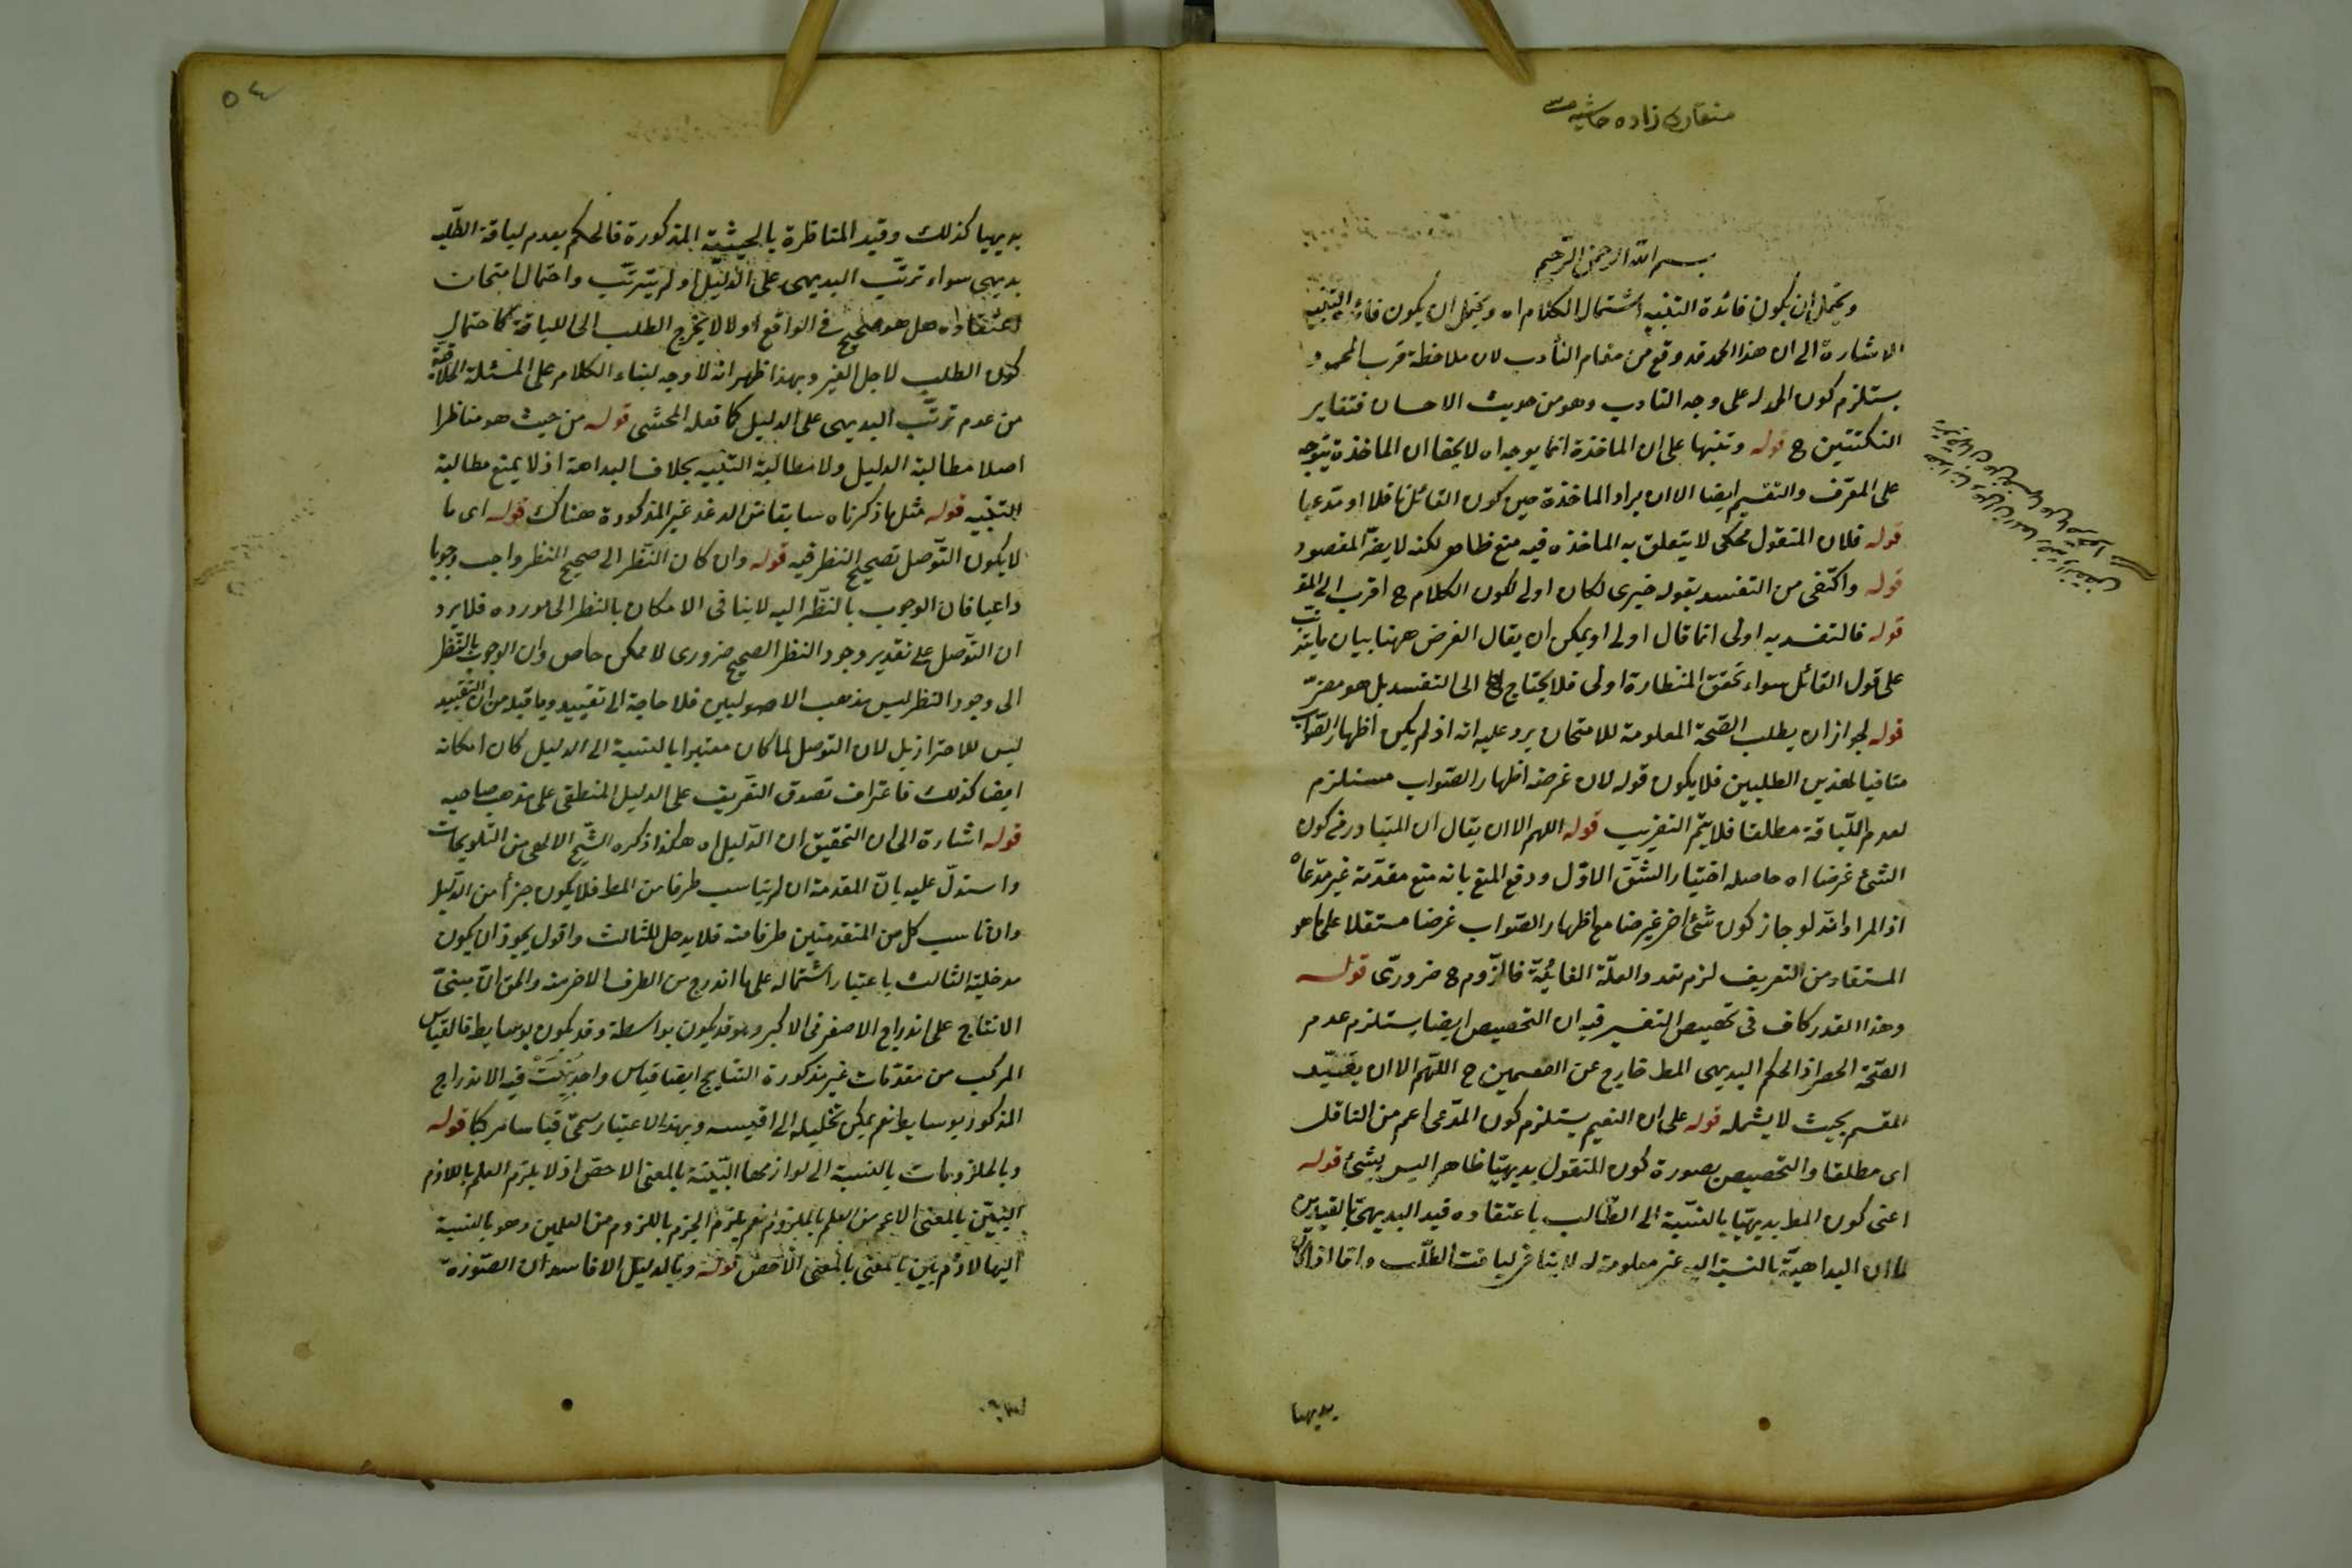 منقاری زاده حاشیه سی
بسم الله الرحمن الرحيم
ويحتمل أن يكون فائدة التنبيه اشتمال الكلام اه ويحتمل ان يكون فائدة التنبيه
الاشارة الى ان هذا الحمد قد وقع من مقام التأدب لان ملاحظة قرب المحمود
يستلزم كون الحمد له على وجه التادب وهو من حديث الاحسان فتغاير
النكتتين ح قوله وتنبيها على ان الماخذة انما يوجه اه لا يخفا ان الماخذة يتوجه
على المعرف والتقسيم ايضا الا ان يراد الماخذة حين كون القائل ناقلا او مدعيا
قوله فلان المنقول محكى لا يتعلق به الماخذه فيه منع ظاهر لكنه لا يضر المقصود
قوله واكتفى من التفسير بقوله خبرى لكان اولى لكون الكلام ح اقرب الى المقـ
قوله فالتفسير به اولى انما قال اولى او يمكن ان يقال الغرض ههنا بيان ما يترتب
على قول القائل سواء تحقق المنظارة اولى فلا يحتاج الى التفسير بل هو مضر
قوله لجواز ان يطلب الصحة المعلومة للامتحان يرد عليه انه اذ لم يكن اظهار الصواب
منافيا لهذين الطلبين فلا يكون قوله لان غرضه اظهار الصواب مستلزم
لعدم اللياقة مطلقا فلا يتم التقريب قوله اللهم الا ان يقال ان المتبادر من كون
الشئ غرضا اه حاصله اختيار الشق الاول ودفع المنع بانه منع مقدمة غير مدعاة
اذ المراد انه لو جاز كون شئ اخر غرضا مع اظهار الصواب غرضا مستقلا على ما هو
المستفاد من التعريف لزم تعدد العلة الغائية فالزوم ح ضرورى قوله
وهذا القدر كاف فى تخصيص التفسير فيه ان التخصيص ايضا يستلزم عدم
الصحة الحصر اذ الحكم البديهى المط خارج عن القسمين ح اللهم الا ان يقيد
المقسم بحيث لا يشمله قوله على ان التعيم يستلزم كون المدعى اعم من الناقل
اى مطلقا والتخصيص بصورة كون المنقول بديهيا ظاهر اليس بشئ قوله
اعنى كون المط بديهيا بالنسبة الى الطالب باعتقاده قيد البديهى بالقيدين
لما ان البداهية بالنسبة اليه غير معلومة له لا ينافى لياقت الطلب واما اذا كان
بديهيا
٥٤
بديهيا كذلك وقيد المناظرة بالحيثية المذكورة فالحكم بعدم لياقة الطلب
بديهى سواء ترتب البديهى على الدليل او لم يترتب واحتمال امتحان
اعتقاده هل هو صحيح فى الواقع اولا لا يخرج الطلب الى اللياقة كاحتمال
كون الطلب لاجل الغير وبهذا ظهر انه لا وجه لبناء الكلام على المسئلة الخلافية
من عدم ترتب البديهى على الدليل كما فعله المحشى قوله من حيث هو مناظرا
اصلا مطالبة الدليل ولا مطالبة التنبيه بخلاف البداهة اذ لا يمنع مطالبة
التنبيه قوله مثل ما ذكرناه سابقا من الدغدغير المذكورة هناك قوله اى ما
لا يكون التوصل بصحيح النظر فيه قوله وان كان النظر الى صحيح النظر واجب وجوبا
داعيا فان الوجوب بالنظر اليه لا ينافى الامكان بالنظر الى مورده فلا يرد
ان التوصل على تقدير وجود النظر الصحيح ضرورى لا ممكن خاص وان الوجوب بالنظر
الى وجود النظر ليس مذهب الاصوليين فلا حاجة الى تقييد وما قيد من ان التقييد
ليس للاحتراز بل لان التوصل لما كان معتبرا بالنسبة الى الدليل كان امكانه
ايضا كذلك فاعتراف تصدق التعريف على الدليل المنطقى على مذهب صاحبه
قوله اشارة الى ان التحقيق ان الدليل اه هكذا ذكره الشيخ الالهى من التلويحات
واستدل عليه بان المقدمة ان لم يناسب طرفا من المط فلا يكون جزأ من الدليل
وان ناسب كل من المتقدمتين طرفا منه فلا يدخل للثالث واقول يجوز ان يكون
مدخلية الثالث باعتبار اشتماله على ما اندرج من الطرف الاخر منه والحق ان مبنى
الانتاج على اندراج الاصغر فى الاكبر وهو قد يكون بواسطة وقد يكون بوسايط فالقياس
المركب من مقدمات غير مذكورة النتايج ايضا قياس واحد فيه الاندراج
المذكور بوسايط نعم يمكن تحليله الى اقيسه وبهذا الاعتبار سمى قياسا مركبا قوله
وبالملزومات بالنسبة الى لوازمها البينة بالمعنى الاخص اذ لا يلزم العلم باللازم
البين بالمعنى الاعم من العلم بالملزوم نعم يلزم الجزم باللزوم من العلمين وهو بالنسبة
اليها لازم بين بالمعنى بالمعنى الاخص قوله وبالدليل الافاسد ان الصورة